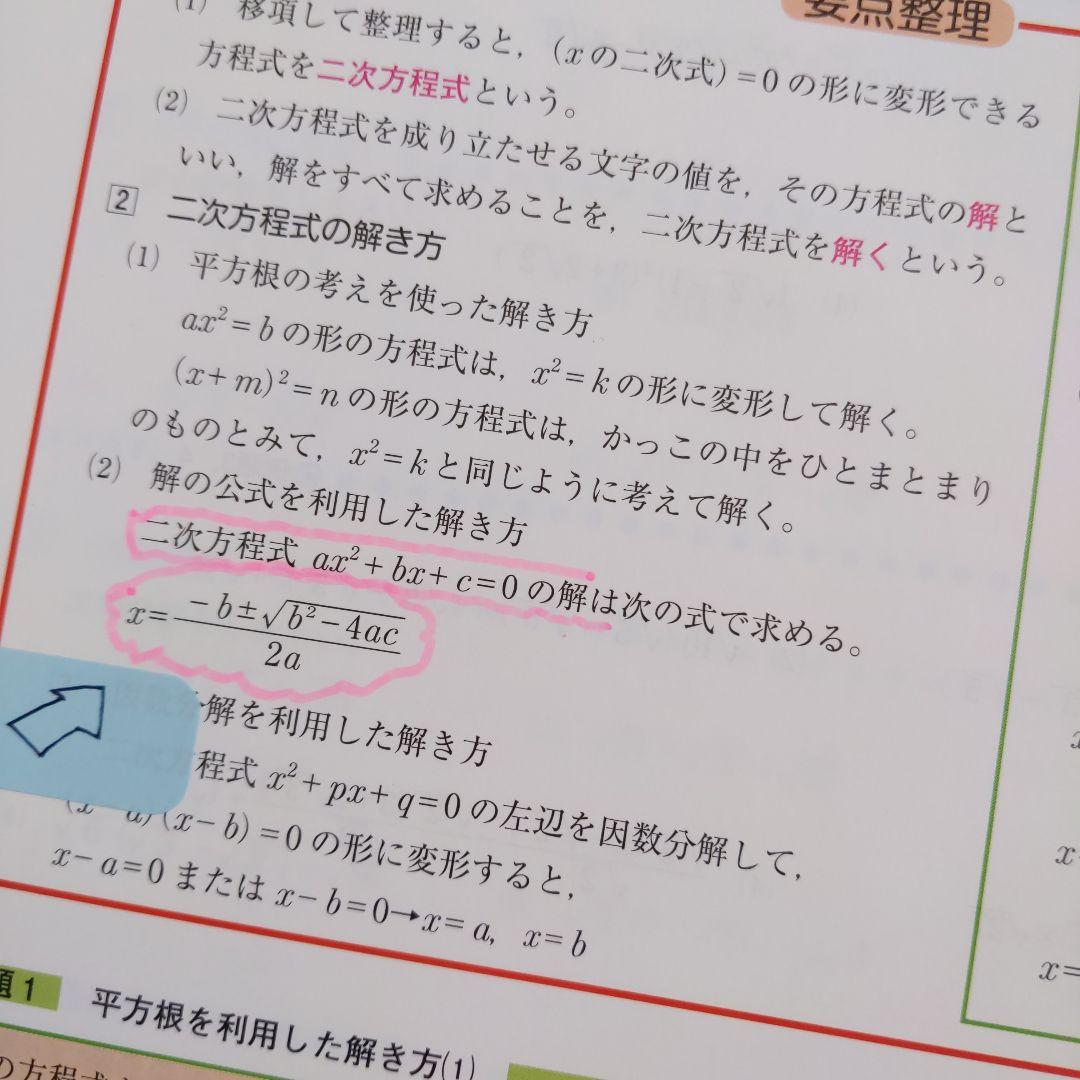 要点整理
(1) 移項して整理すると,(xの二次式)=0の形に変形できる
方程式を二次方程式という。
(2) 二次方程式を成り立たせる文字の値を,その方程式の解と
いい,解をすべて求めることを,二次方程式を解くという。
2 二次方程式の解き方
(1) 平方根の考えを使った解き方
ax²=bの形の方程式は,x²=kの形に変形して解く。
(x+m)²=nの形の方程式は,かっこの中をひとまとまり
のものとみて,x²=kと同じように考えて解く。
(2) 解の公式を利用した解き方
二次方程式 ax²+bx+c=0の解は次の式で求める。
x=(-b±√(b²-4ac))/2a
分解を利用した解き方
程式 x²+px+q=0の左辺を因数分解して,
(x-a)(x-b)=0の形に変形すると,
x-a=0 または x-b=0→x=a, x=b
題1 平方根を利用した解き方(1)
の方程式
x=
x=